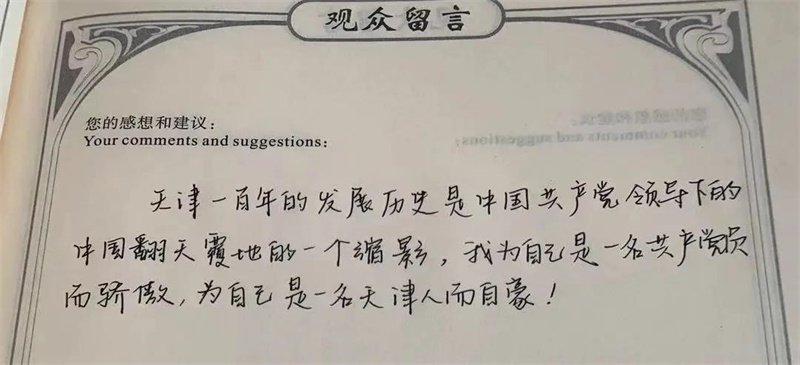 观众留言
您的感想和建议：
Your comments and suggestions:
天津一百年的发展历史是中国共产党领导下的
中国翻天覆地的一个缩影，我为自己是一名共产党员
而骄傲，为自己是一名天津人而自豪！